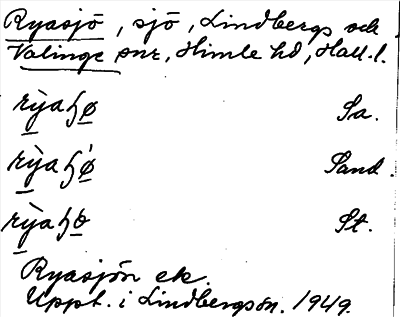 Ryasjö, sjö, Lindbergs och
Valinge snr, Himle hd, Hall. l.
rỳaɧø Sa.
rỳaɧǿ Sand.
rỳaɧɵ St.
Ryasjön ek.
Uppt. i Lindbergs sn. 1949.